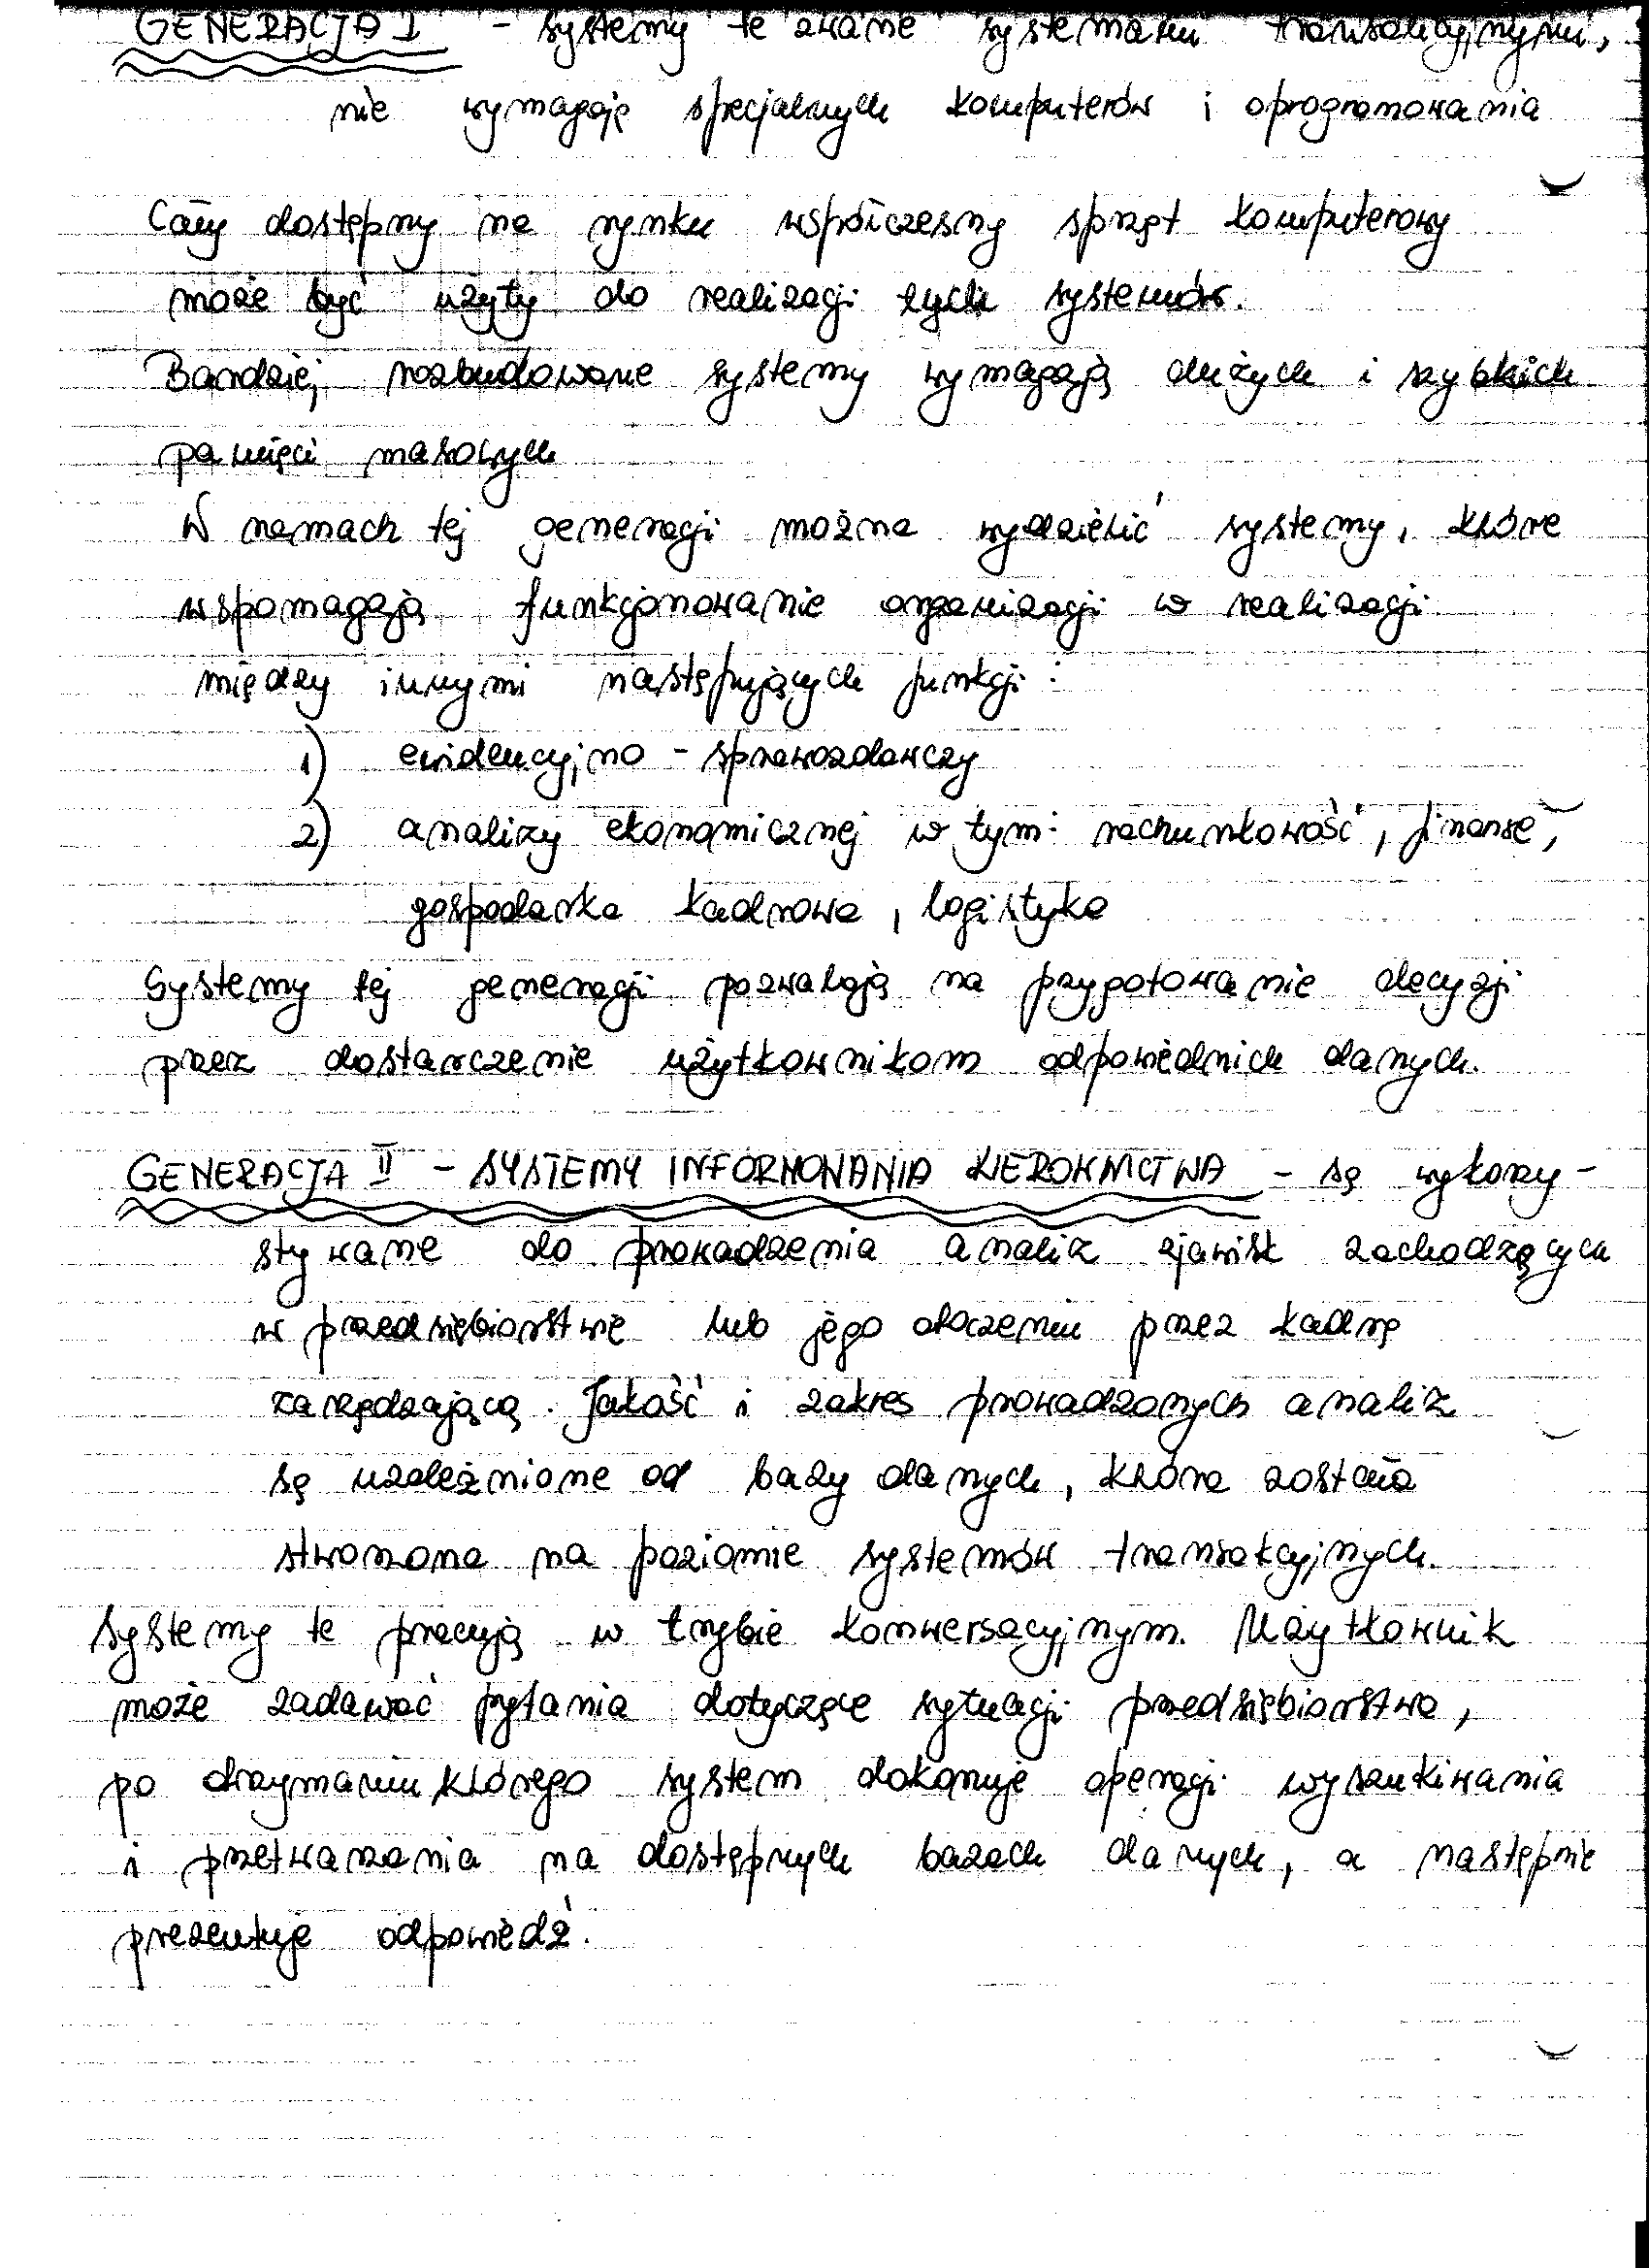 GENERACJA I - systemy te zwane systemami transakcyjnymi,
nie wymagają specjalnych komputerów i oprogramowania
Cały dostępny na rynku współczesny sprzęt komputerowy
może być użyty do realizacji tych systemów.
Bardziej rozbudowane systemy wymagają dużych i szybkich
pamięci masowych
W ramach tej generacji można wydzielić systemy, które
wspomagają funkcjonowanie organizacji w realizacji
między innymi następujących funkcji:
1) ewidencyjno - sprawozdawczy
2) analizy ekonomicznej w tym: rachunkowość, finanse,
gospodarka kadrowa, logistyka
Systemy tej generacji pozwalają na przygotowanie decyzji
przez dostarczenie użytkownikom odpowiednich danych.
GENERACJA II - SYSTEMY INFORMOWANIA KIEROWNICTWA - są wykorzy-
stywane do prowadzenia analiz zjawisk zachodzących
w przedsiębiorstwie lub jego otoczeniu przez kadrę
zarządzającą. Jakość i zakres prowadzonych analiz
są uzależnione od bazy danych, która została
stworzona na poziomie systemów transakcyjnych.
Systemy te pracują w trybie konwersacyjnym. Użytkownik
może zadawać pytania dotyczące sytuacji przedsiębiorstwa,
po otrzymaniu którego system dokonuje operacji wyszukiwania
i przetwarzania na dostępnych bazach danych, a następnie
prezentuje odpowiedź.